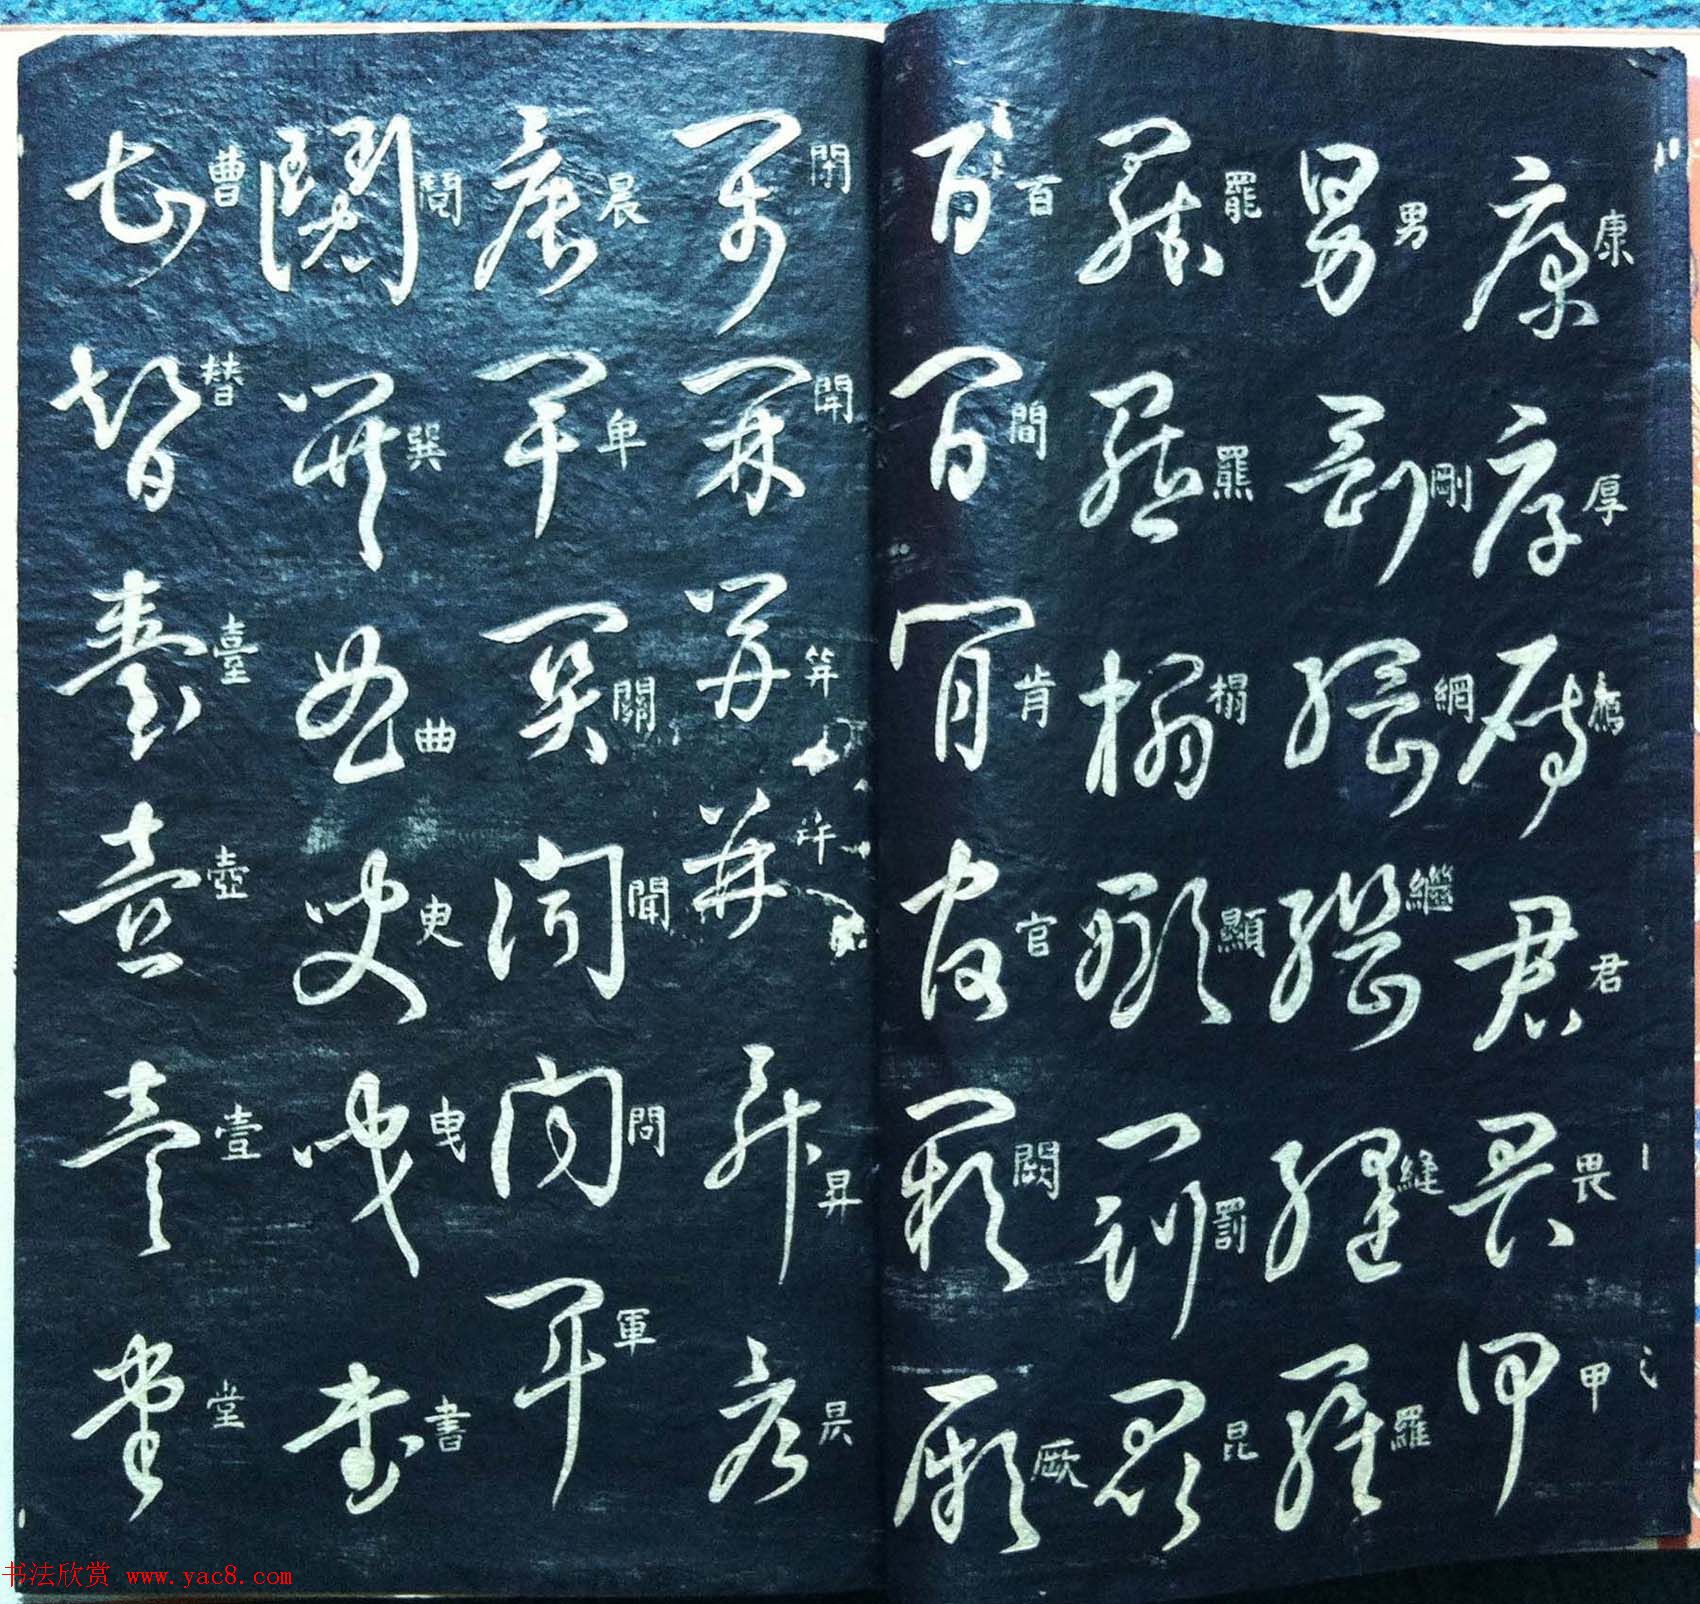 康厚鷹君畏甲
男剛網繼縫羅
罷羆榻顯罰昆
百間肯官闕厥
閉開笄昇昃
晨单關聞問軍
巽曲臾曳書
曹替臺壺壹堂
书法欣赏 www.yac8.com